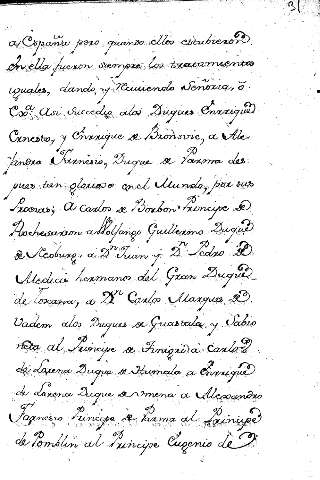 3
a España pero quando ellos estubieron
en ella fueron siempre los tratamientos
iguales, dando, y reciviendo Señoria, ò
Exª. Asi sucedio alos Duques Enrrique
Ernesto, y Enrrique de Bronsvic, a Ale
jandro Farnesio, Duque de Parma des
pues tan glorioso en el Mundo, por sus
Proezas; A Carlos de Borbon Principe de
Rochesurion a Wolfango Guillermo Duque
de Neoburg, a Dⁿ Juan y Dⁿ Pedro de
Medicis hermanos del Gran Duque
de Toscana, a Dⁿ Carlos Marques de
Vadem alos Duques de Guastala, y Sabio
neta al Principe de Carlos
de Lorena Duque de Humala a Enrrique
de Lorena Duque de Umena a Alexandro
Farnesio Principe de Parma al Principe
de Pomblin al Principe Eugenio de